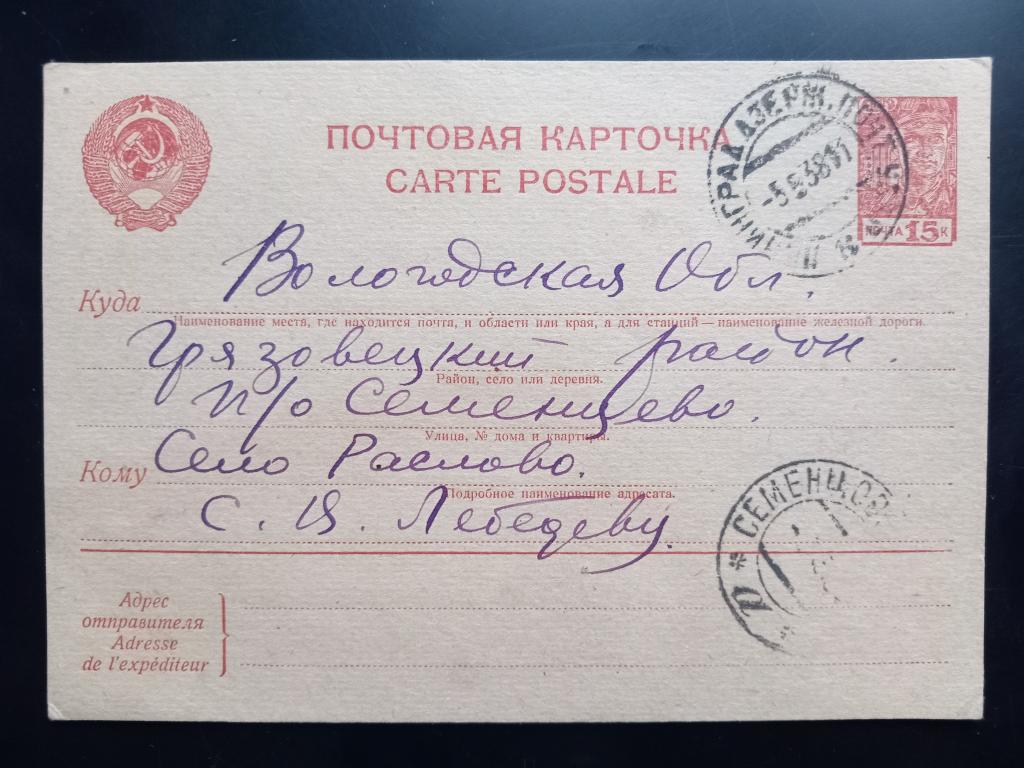 ПОЧТОВАЯ КАРТОЧКА
CARTE POSTALE
ДЗЕРЖ. ПОЧТ
ПОЧТА 15 К
Вологодская Обл.
Куда
Наименование места, где находится почта, и области или края, а для станций — наименование железной дороги.
Грязовецкий район.
Район, село или деревня.
п/о Семенцево.
Улица, № дома и квартиры.
Кому Село Раслово.
Подробное наименование адресата.
С. Я. Лебедеву.
СЕМЕНЦОВ
Адрес
отправителя
Adresse
de l'expéditeur